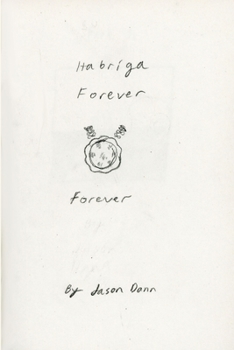 Habriga
Forever
Forever
By Jason Dann